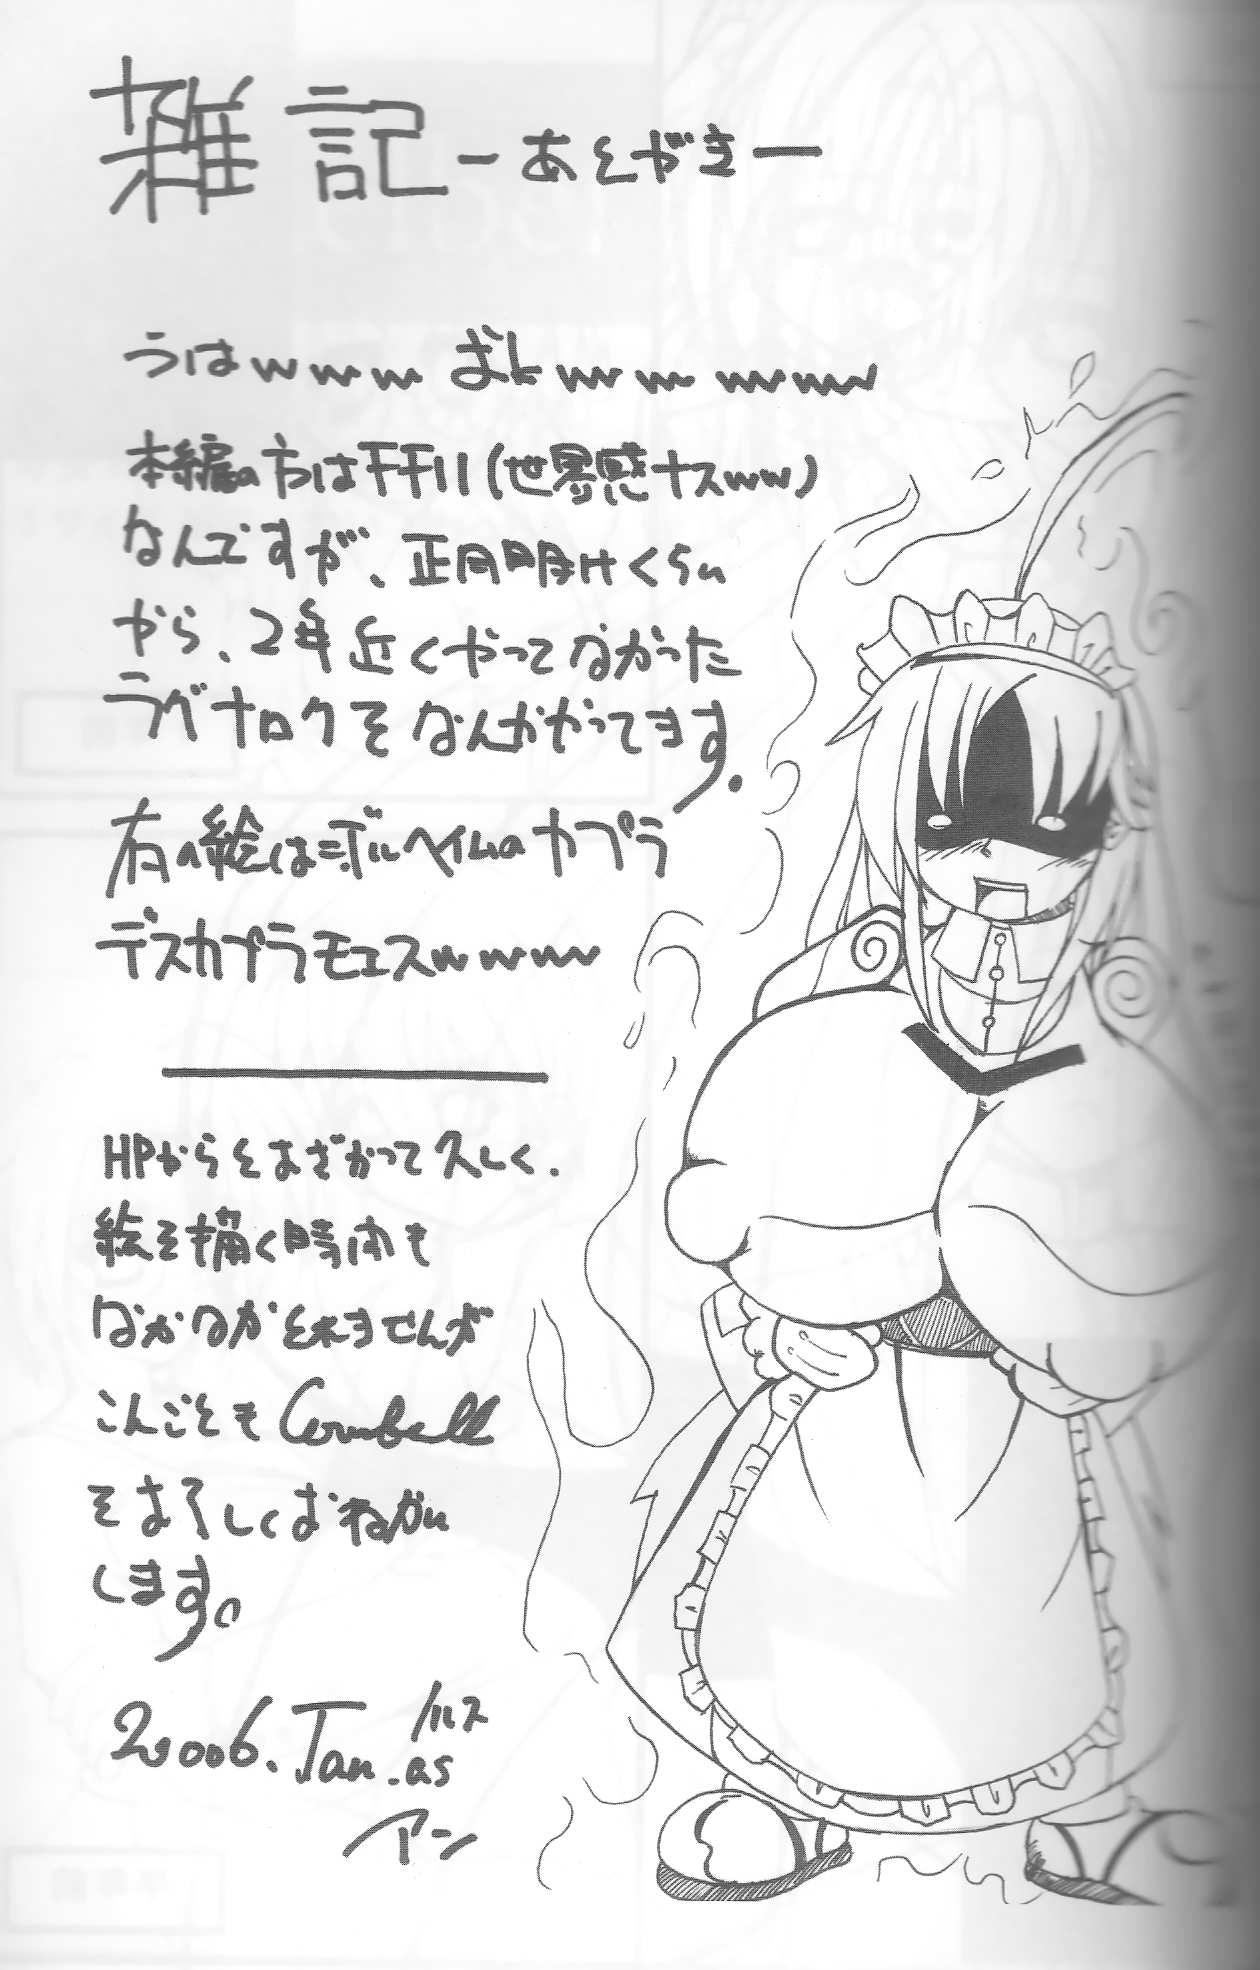 雑記 ーあとがきー
うはwww おkwwwwwww
本編の方は(世界感ナスww)
なんですが、正月明けくらい
から、2年近くやってなかった
ラグナロクをなんかやってます。
右の絵はニブルヘイムのカプラ
デスカプラモエスwwww
HPからとおざかって久しく、
絵を描く時間も
なかなかとれませんが
こんごとも
をよろしくおねがい
します。
2006.Jan.